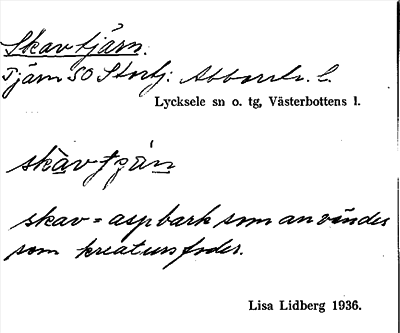 Skavtjärn.
Tjärn SO Stortj: Abborrb. l.
Lycksele sn o. tg, Västerbottens l.
skàv tjä̀n
skav = aspbark som användes
som kreatursfoder.
Lisa Lidberg 1936.